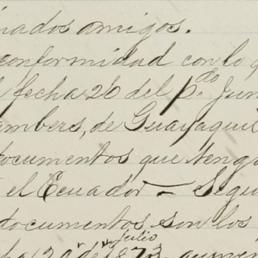 inados amigos.
conformidad con lo q
fecha 26 del p.do Jun
ambers, de Guayaquil
documentos que teng
el Ecuador — Segu
documentos son los
julio
1873